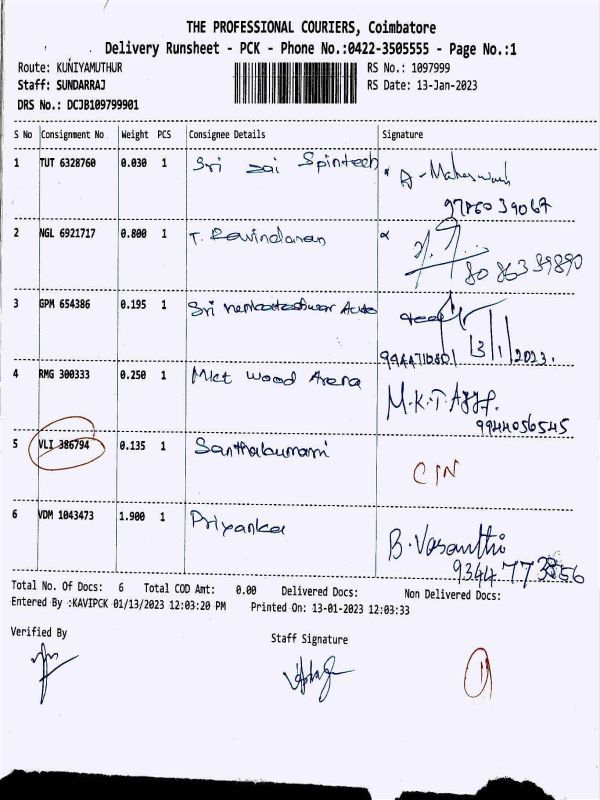 THE PROFESSIONAL COURIERS, Coimbatore
Delivery Runsheet - PCK - Phone No.:0422-3505555 - Page No.:1
Route: KUNIYAMUTHUR RS No.: 1097999
Staff: SUNDARRAJ RS Date: 13-Jan-2023
DRS No.: DCJB109799901
S No Consignment No Weight PCS Consignee Details Signature
1 TUT 6328760 0.030 1 Sri sai Spintech
2 NGL 6921717 0.800 1 T. Ravindaran
8086339890
3 GPM 654386 0.195 1 Sri Auto
13/1/2023.
4 RMG 300333 0.250 1 Mkt Wood Arena
M.K.T.
9944056545
5 VLI 386794 0.135 1 Santhakumari
6 VDM 1043473 1.900 1 Priyanka
B. Vasanthi
Total No. Of Docs: 6 Total COD Amt: 0.00 Delivered Docs: Non Delivered Docs:
Entered By :KAVIPCK 01/13/2023 12:03:20 PM Printed On: 13-01-2023 12:03:33
Verified By Staff Signature